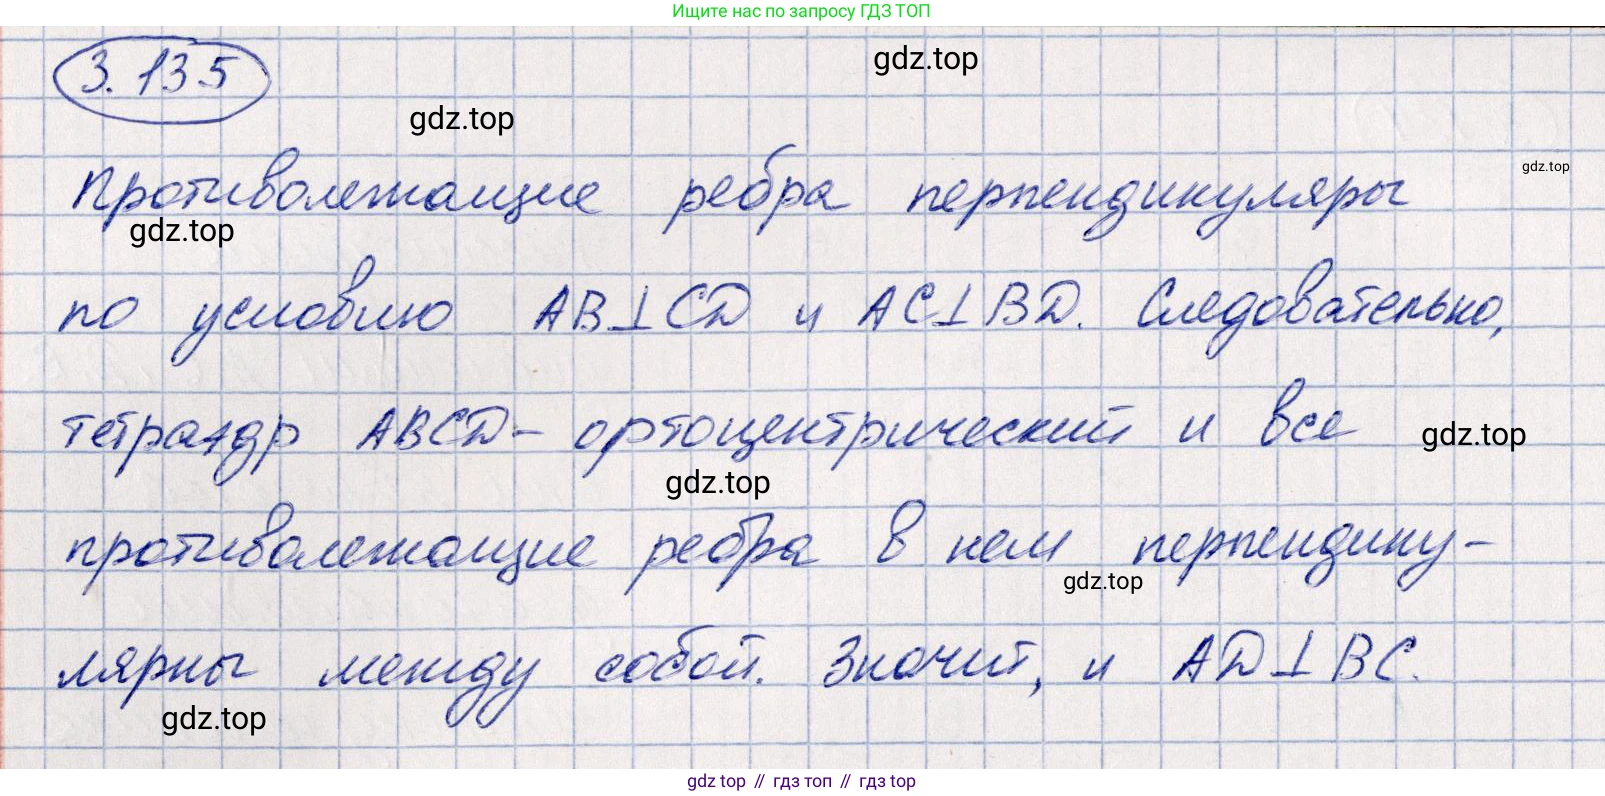 Ищите нас по запросу ГДЗ ТОП
3.135
gdz.top
gdz.top
gdz.top
Противолежащие ребра перпендикуляры
gdz.top
по условию AB⊥CD и AC⊥BD. Следовательно,
тетраэдр ABCD- ортоцентрический и все
gdz.top
gdz.top
противолежащие ребра в нем перпендику-
gdz.top
лярны между собой. Значит, и AD⊥BC.
gdz.top
gdz top // гдз топ // гдз top